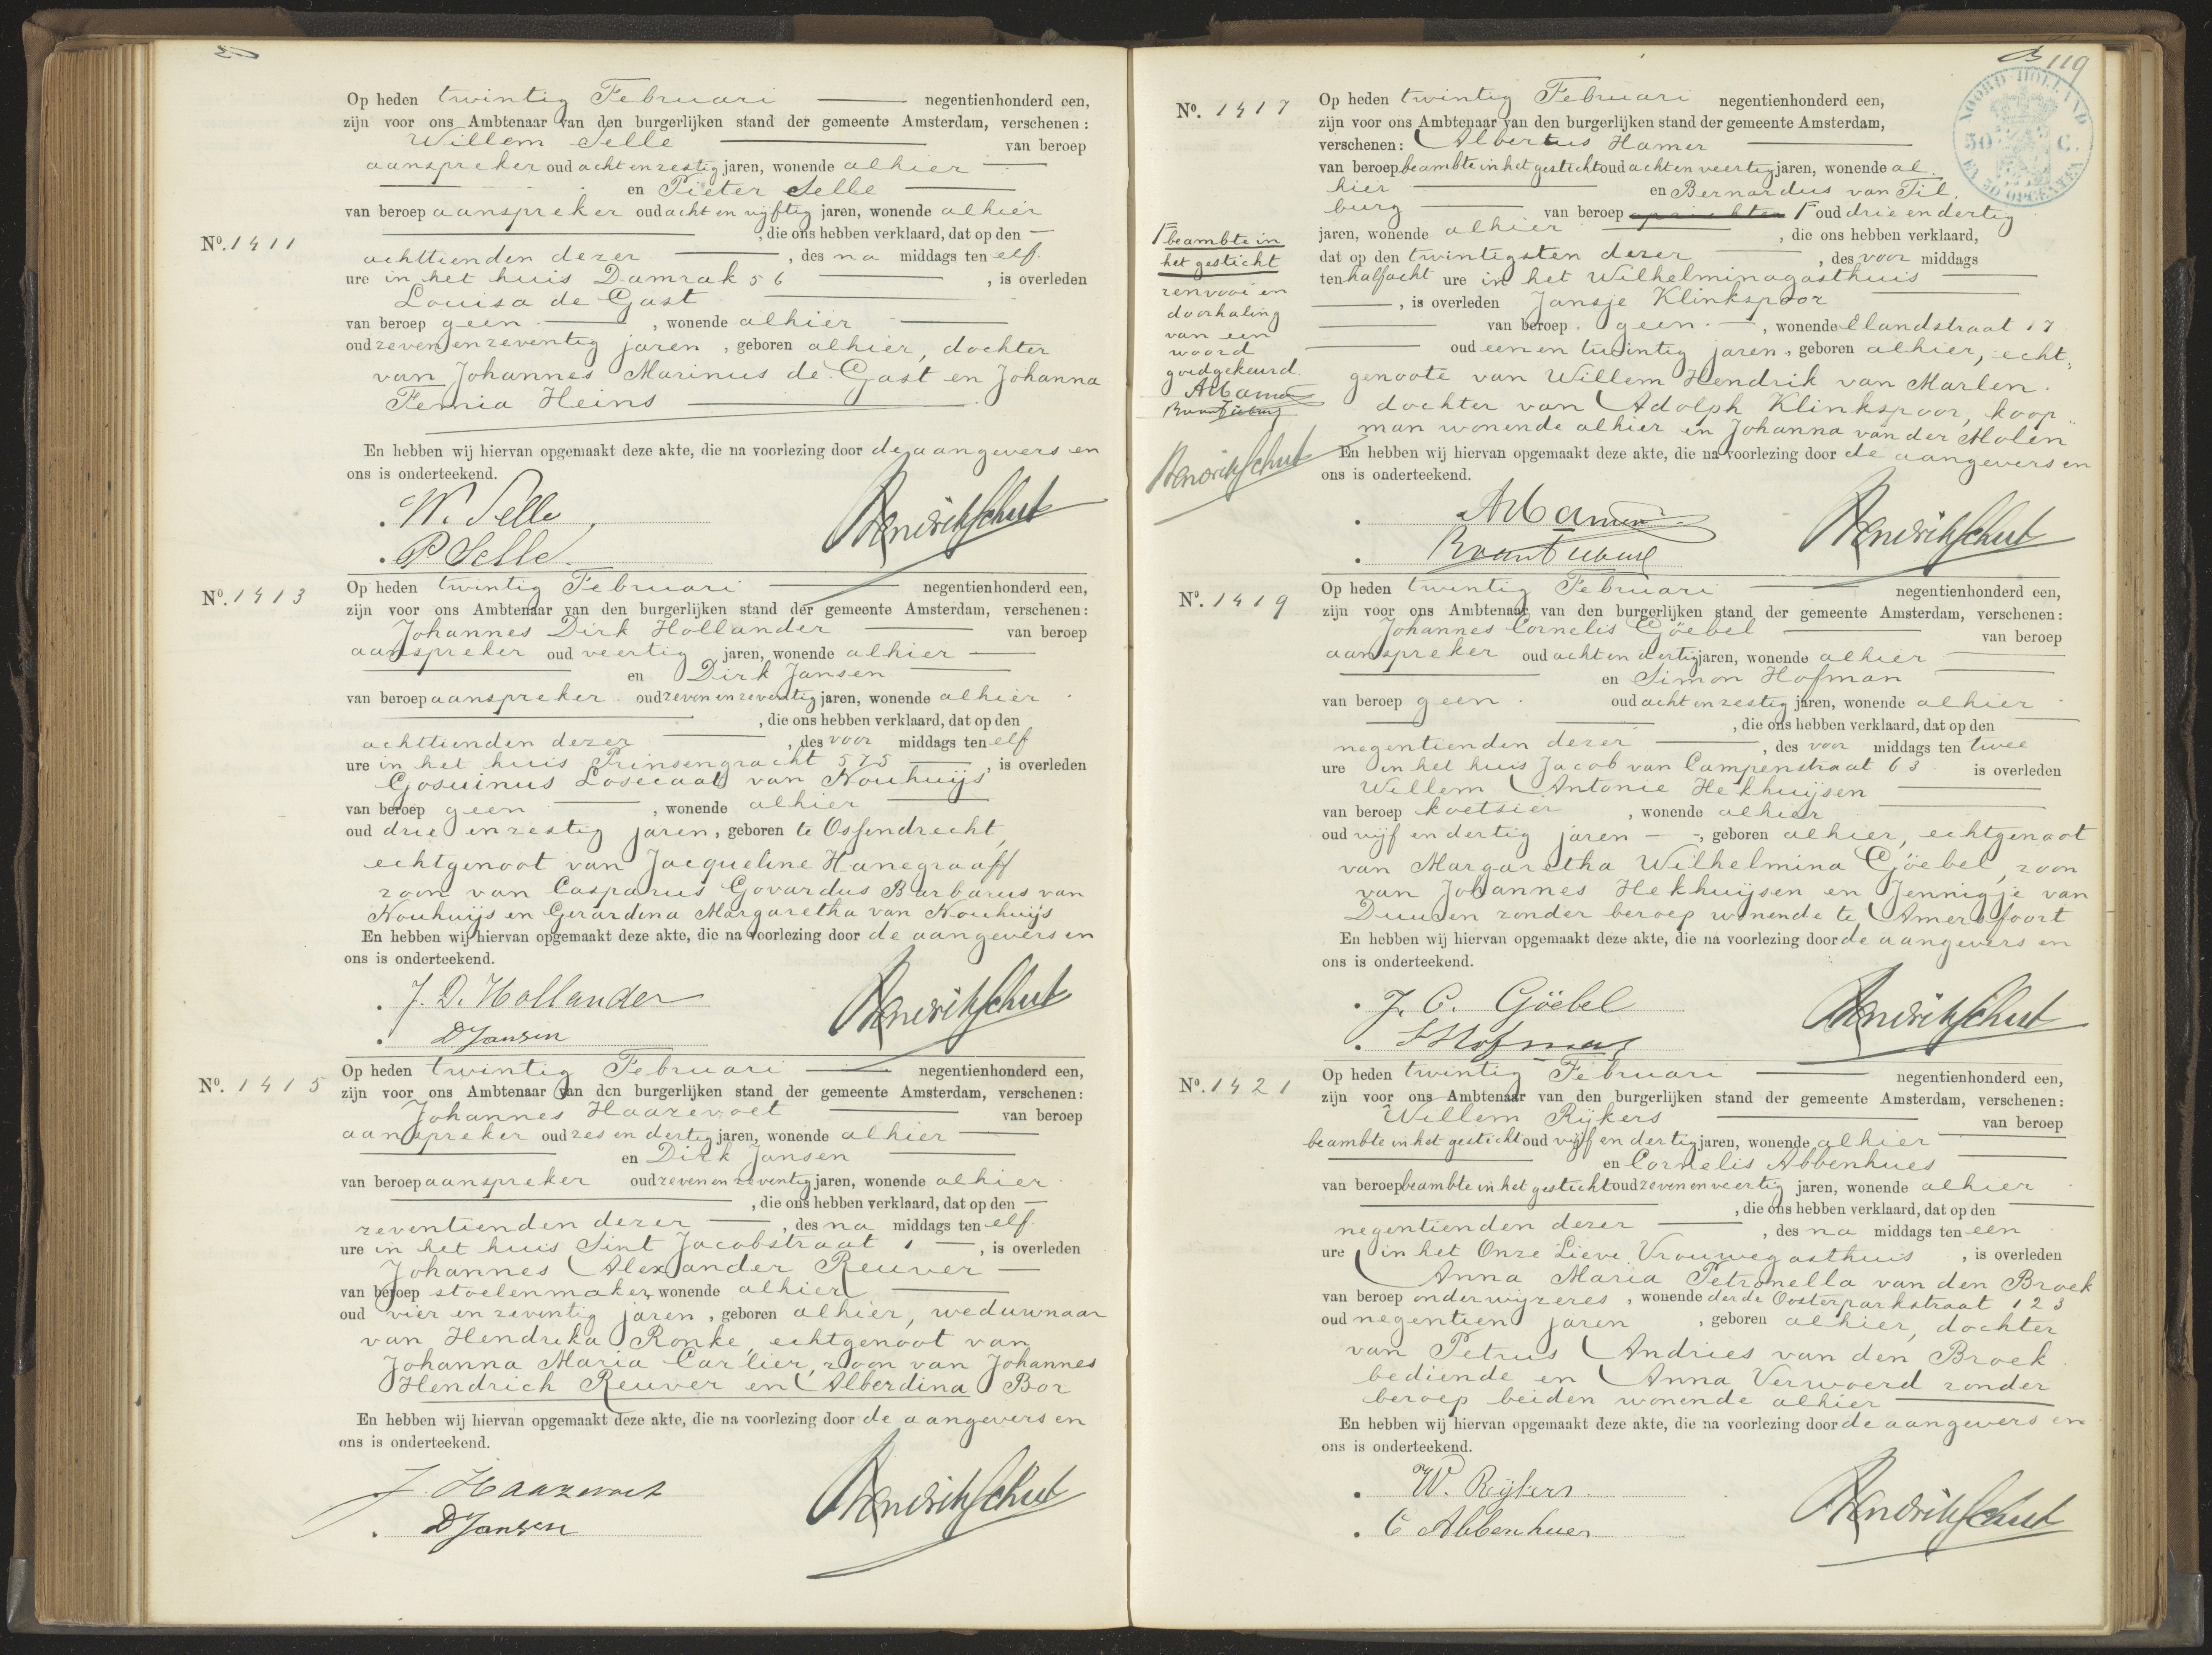 Op heden twintig Februari negentienhonderd een,
zijn voor ons Ambtenaar van den burgerlijken stand der gemeente Amsterdam, verschenen:
Willem Selle van beroep
aanspreker oud acht en zestig jaren, wonende alhier
en Pieter Selle
van beroep aanspreker oud acht en vijftig jaren, wonende alhier
, die ons hebben verklaard, dat op den
No. 1411
achttienden dezer, des na middags ten elf
ure in het huis Damrak 56, is overleden
Louisa de Gast
van beroep geen, wonende alhier
oud zeven en zeventig jaren, geboren alhier, dochter
van Johannes Marinus de Gast en Johanna
Femia Heins
En hebben wij hiervan opgemaakt deze akte, die na voorlezing door de aangevers en
ons is onderteekend.
W. Selle
P Selle
No. 1413
Op heden twintig Februari negentienhonderd een,
zijn voor ons Ambtenaar van den burgerlijken stand der gemeente Amsterdam, verschenen:
Johannes Dirk Hollander van beroep
aanspreker oud veertig jaren, wonende alhier
en Dirk Jansen
van beroep aanspreker oud zeven en zeventig jaren, wonende alhier
, die ons hebben verklaard, dat op den
achttienden dezer, des voor middags ten elf
ure in het huis Prinsengracht 575, is overleden
Gosuinus Losecaat van Nouhuijs
van beroep geen, wonende alhier
oud drie en zestig jaren, geboren te Ossendrecht,
echtgenoot van Jacqueline Hanegraaff
zoon van Casparus Govardus Barbarus van
Nouhuijs en Gerardina Margaretha van Nouhuijs
En hebben wij hiervan opgemaakt deze akte, die na voorlezing door de aangevers en
ons is onderteekend.
J. D. Hollander
D Jansen
No. 1415
Op heden twintig Februari negentienhonderd een,
zijn voor ons Ambtenaar van den burgerlijken stand der gemeente Amsterdam, verschenen:
Johannes Haazevoet van beroep
aanspreker oud zes en dertig jaren, wonende alhier
en Dirk Jansen
van beroep aanspreker oud zeven en zeventig jaren, wonende alhier
, die ons hebben verklaard, dat op den
zeventienden dezer, des na middags ten elf
ure in het huis Sint Jacobstraat 1, is overleden
Johannes Alexander Reuver
van beroep stoelenmaker, wonende alhier
oud vier en zeventig jaren, geboren alhier, weduwnaar
van Hendrika Ronke, echtgenoot van
Johanna Maria Carlier, zoon van Johannes
Hendrich Reuver en Alberdina Bor
En hebben wij hiervan opgemaakt deze akte, die na voorlezing door de aangevers en
ons is onderteekend.
J. Haazevoet
D Jansen
119
NOORD-HOLLAND
50 C.
EN 30 OPCENTEN
No. 1417
Op heden twintig Februari negentienhonderd een,
zijn voor ons Ambtenaar van den burgerlijken stand der gemeente Amsterdam,
verschenen: Albertus Hamer
van beroep beambte in het gesticht oud acht en veertig jaren, wonende al
hier en Bernardus van Til
burg van beroep oud drie en dertig
jaren, wonende alhier, die ons hebben verklaard,
dat op den twintigsten dezer, des voor middags
ten half acht ure in het Wilhelminagasthuis
, is overleden Jansje Klinkspoor
van beroep geen, wonende Elandstraat 17
oud een en twintig jaren, geboren alhier, echt„
genoote van Willem Hendrik van Marlen.
dochter van Adolph Klinkspoor, koop„
man wonende alhier en Johanna van der Molen
En hebben wij hiervan opgemaakt deze akte, die na voorlezing door de aangevers en
ons is onderteekend.
beambte in
het gesticht
renvooi en
doorhaling
van een
woord
goedgekeurd.
AHamer
BvanTilburg
Hendrik Schut
AHamer
BvanTilburg
Hendrik Schut
No. 1419
Op heden twintig Februari negentienhonderd een,
zijn voor ons Ambtenaar van den burgerlijken stand der gemeente Amsterdam, verschenen:
Johannes Cornelis Göebel van beroep
aanspreker oud acht en dertig jaren, wonende alhier
en Simon Hofman
van beroep geen oud acht en zestig jaren, wonende alhier
, die ons hebben verklaard, dat op den
negentienden dezer, des voor middags ten twee
ure in het huis Jacob van Campenstraat 63 is overleden
Willem Antonie Hekhuijsen
van beroep koetsier, wonende alhier
oud vijf en dertig jaren, geboren alhier, echtgenoot
van Margaretha Wilhelmina Göebel, zoon
van Johannes Hekhuijsen en Jennigje van
Duuren zonder beroep wonende te Amersfoort
En hebben wij hiervan opgemaakt deze akte, die na voorlezing door de aangevers en
ons is onderteekend.
J. C. Göebel
S Hofman
Hendrik Schut
No. 1421
Op heden twintig Februari negentienhonderd een,
zijn voor ons Ambtenaar van den burgerlijken stand der gemeente Amsterdam, verschenen:
Willem Rijkers van beroep
beambte in het gesticht oud vijf en dertig jaren, wonende alhier
en Cornelis Abbenhues
van beroep beambte in het gesticht oud zeven en veertig jaren, wonende alhier
, die ons hebben verklaard, dat op den
negentienden dezer, des na middags ten een
ure in het Onze Lieve Vrouwegasthuis, is overleden
Anna Maria Petronella van den Broek
van beroep onderwijzeres, wonende derde Oosterparkstraat 123
oud negentien jaren, geboren alhier, dochter
van Petrus Andries van den Broek
bediende en Anna Verwoerd zonder
beroep beiden wonende alhier
En hebben wij hiervan opgemaakt deze akte, die na voorlezing door de aangevers en
ons is onderteekend.
W. Rijkers
C Abbenhues
Hendrik Schut